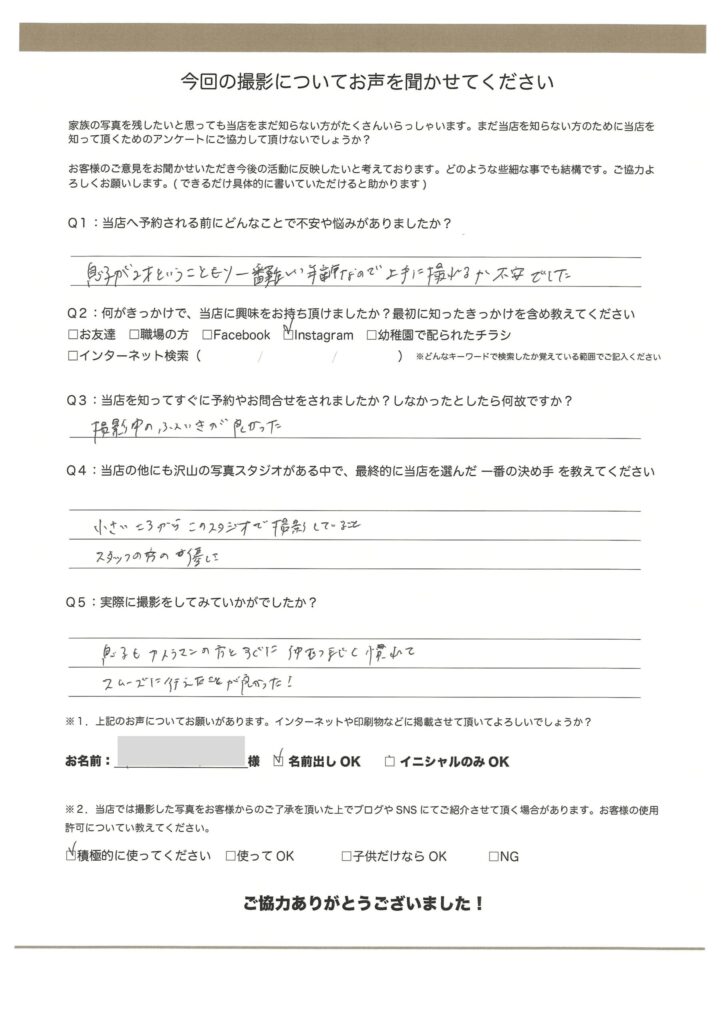 今回の撮影についてお声を聞かせてください
家族の写真を残したいと思っても当店をまだ知らない方がたくさんいらっしゃいます。まだ当店を知らない方のために当店を
知って頂くためのアンケートにご協力して頂けないでしょうか？
お客様のご意見をお聞かせいただき今後の活動に反映したいと考えております。どのような些細な事でも結構です。ご協力よ
ろしくお願いします。( できるだけ具体的に書いていただけると助かります )
Q１：当店へ予約される前にどんなことで不安や悩みがありましたか？
息子が2才ということもあり一番難しい年齢なので上手に撮れるか不安でした
Q２：何がきっかけで、当店に興味をお持ち頂けましたか？最初に知ったきっかけを含め教えてください
□お友達 □職場の方 □Facebook ☑Instagram □幼稚園で配られたチラシ
□インターネット検索（ / / ） ※どんなキーワードで検索したか覚えている範囲でご記入ください
Q３：当店を知ってすぐに予約やお問合せをされましたか？しなかったとしたら何故ですか？
撮影中のふんいきが良かった
Q４：当店の他にも沢山の写真スタジオがある中で、最終的に当店を選んだ 一番の決め手 を教えてください
小さいころからこのスタジオで撮影している
スタッフの方の優しさ
Q５：実際に撮影をしてみていかがでしたか？
息子もカメラマンの方とすぐに 慣れて
スムーズに行えたことが良かった！
※１．上記のお声についてお願いがあります。インターネットや印刷物などに掲載させて頂いてよろしいでしょうか？
お名前： 様 ☑ 名前出し OK □ イニシャルのみ OK
※２．当店では撮影した写真をお客様からのご了承を頂いた上でブログや SNS にてご紹介させて頂く場合があります。お客様の使用
許可についてい教えてください。
☑積極的に使ってください □使って OK □子供だけなら OK □NG
ご協力ありがとうございました！